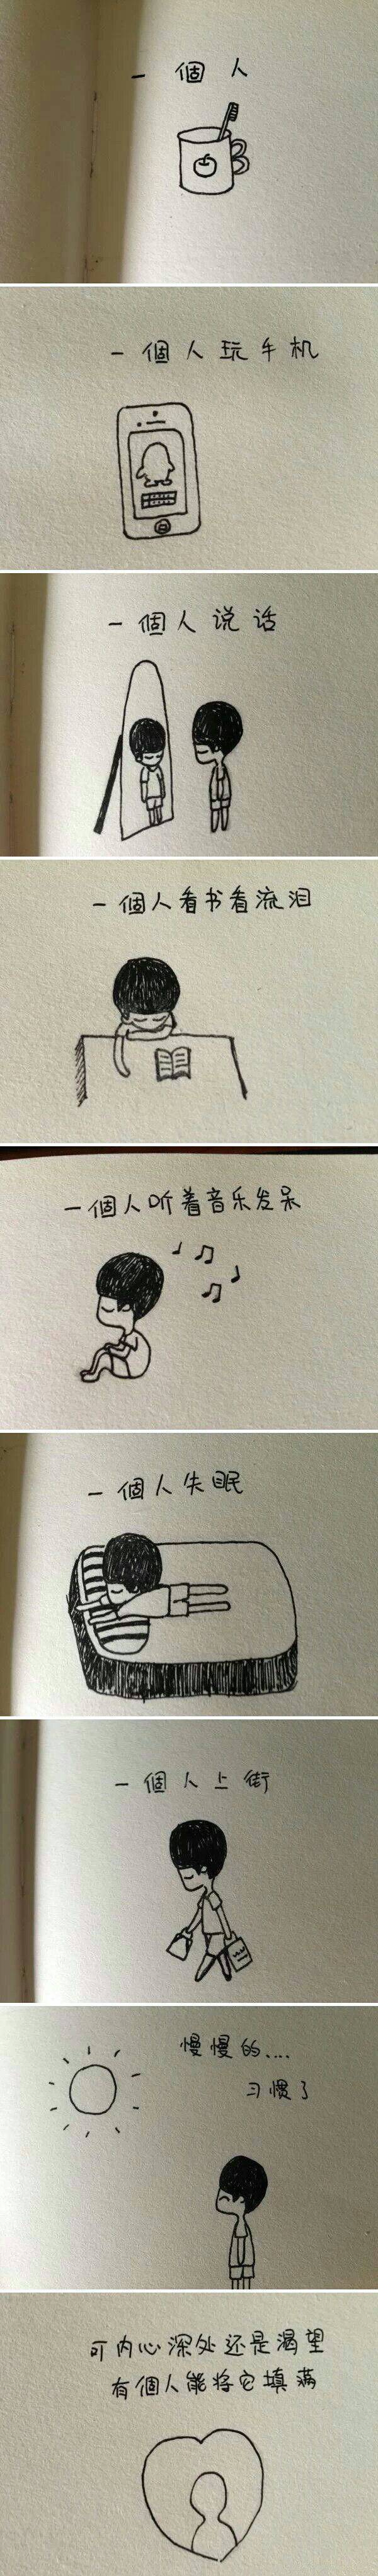 一個人
一個人玩手机
一個人说话
一個人看书看流泪
一個人听着音乐发呆
一個人失眠
一個人上街
慢慢的....
习惯了
可内心深处还是渴望
有個人能将它填满